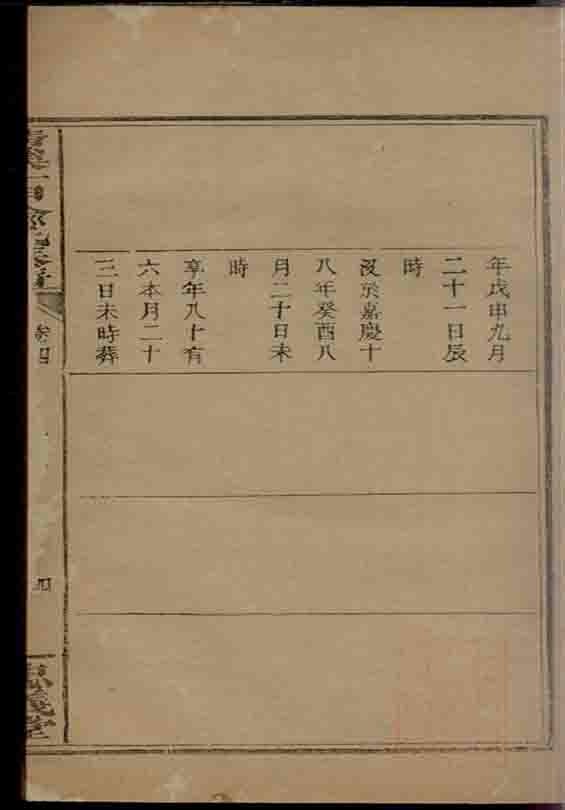 年戊申九月
二十一日辰
時
沒於嘉慶十
八年癸酉八
月二十日未
時
享年八十有
六本月二十
三日未時葬
卷四
四